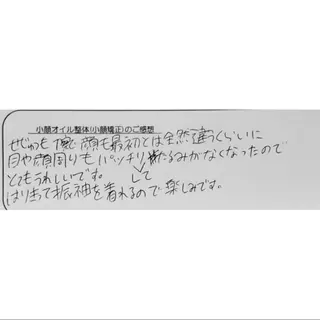 小顔オイル整体(小顔矯正)のご感想
せじゅつも 顔も最初とは全然違うくらいに
目や顔周りもパッチリ たるみがなくなったので
して
とてもうれしいです。
はり当て振袖を着れるので楽しみです。